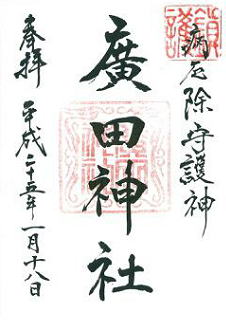 病厄除守護神
廣田神社
奉拝 平成二十五年一月十八日